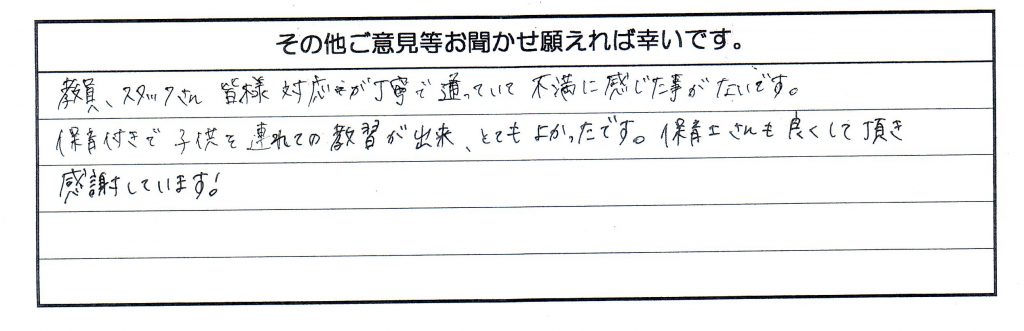 その他ご意見等お聞かせ願えれば幸いです。
教員、スタッフさん 皆様 対応が丁寧で通っていて 不満に感じた事がないです。
保育付きで 子供を連れての教習が出来、とてもよかったです。保育士さんも良くして頂き
感謝しています!